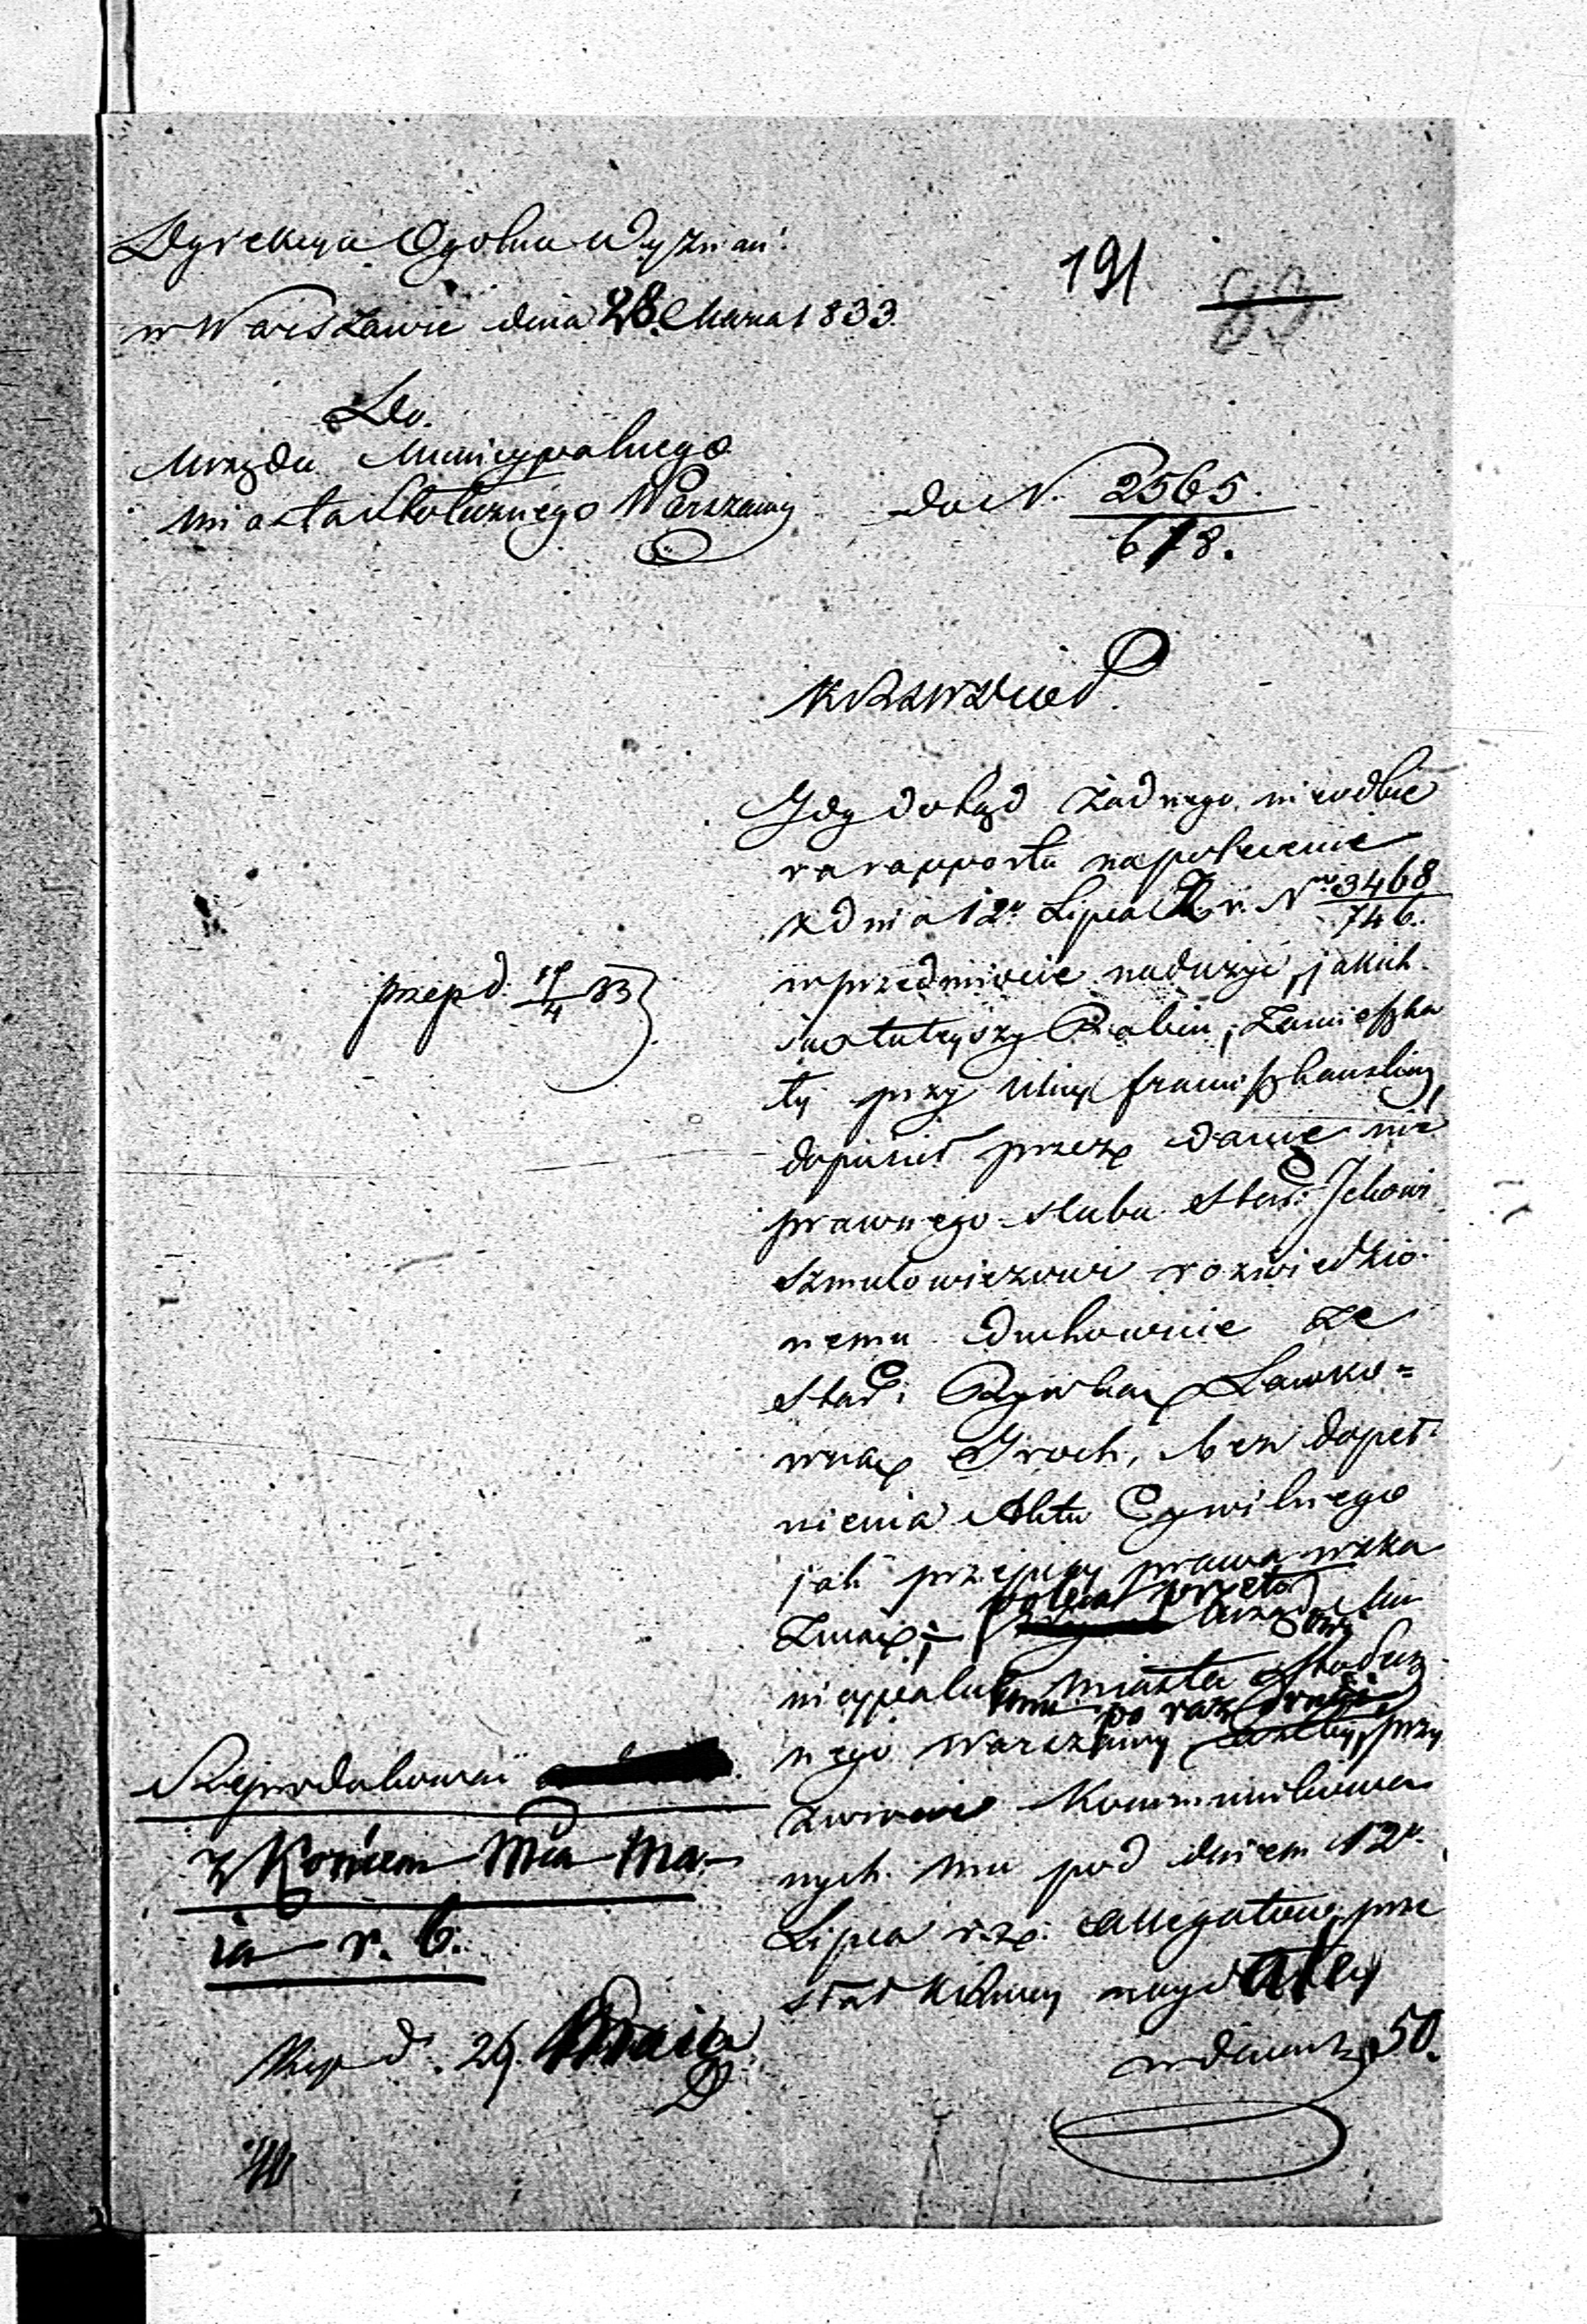 Dyrekcya Ogolna Wyznań.
191
89
w Warszawie dnia 28. Marca 1833.
Do.
Urzędu Municypalnego
miasta Stołecznego Warszawy
Do N. 2565.
678.
Gdy dotąd żadnego nieodbie
ra rapportu na polecenie
z dnia 12º Lipca z. r. Nro 3468
746.
w przedmiocie nadużyć, jakich
się tutejszy Rabin, zamieszka
ły przy ulicy Franciszkańskiej,
dopuścił przez danie nie
prawnego ślubu Star: Ickowi
Szmulowiczowi rozwiedzio
nemu duchownie ze
Star: Rywką Lawko=
wną Groch, bez dopeł
nienia Aktu Cywilnego
jak przepisy prawa wska
zują; poleca przeto Urzędowi Mu
nicypalnemu miasta Stołecz
nego Warszawy po raz drugi, przy
zwrocie kommunikowa
nych mu pod dniem 12º
Lipca r. z. allegatów, prze
słał takowy najdaley
w dniach 50.
przep d. 17/4 33
Reprodukować
z Końcem Mca Ma-
ia r. b.
Exp d. 29. Maia